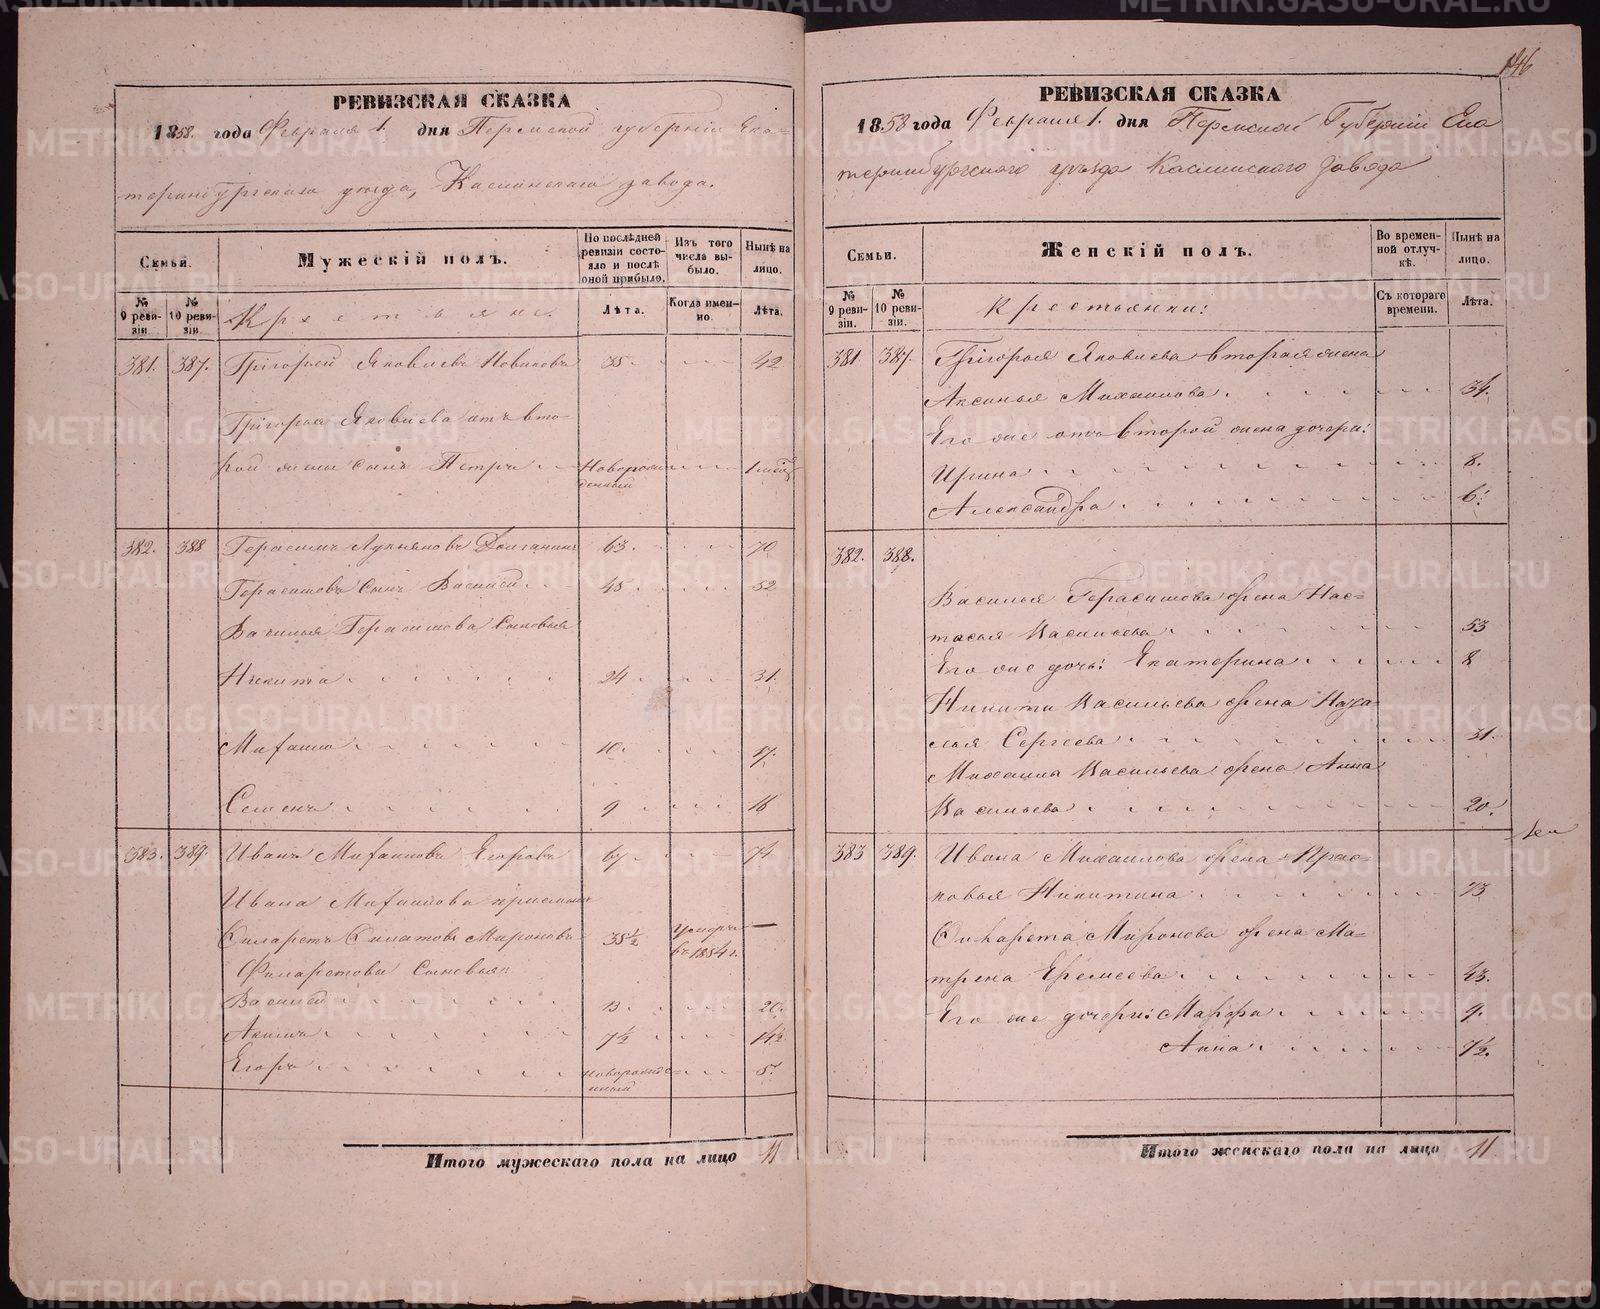 РЕВИЗСКАЯ СКАЗКА
1858 года Февраля 1. дня Пермской губерніи Ека-
теринбургскаго уѣзда, Каслинскаго завода.
Семьи.
Мужескій полъ.
По послѣдней ревизіи состояло и послѣ оной прибыло.
Изъ того числа выбыло.
Нынѣ на лицо.
№ 9 ревизіи.
№ 10 ревизіи.
Крестьяне.
Лѣта.
Когда именно.
Лѣта.
381. 387. Григорій Яковлевъ Новиковъ 35 42
Григорья Яковлева отъ вто-
рой жены сынъ Петръ Новорож- 1 мѣс
денный
382. 388 Герасимъ Лукьяновъ 63 70
Герасимовъ сынъ Василій 45 52
Василья Герасимова сыновья
Никита 24 31.
Михаило 10. 17.
Семенъ 9 16
383. 389. Иванъ Михаиловъ Егоровъ 67 74
Ивана Михаилова приемышъ
Филаретъ Филатовъ Мироновъ 35½ Умеръ —
въ 1854 г.
Филаретовы сыновья:
Василей 13. 20.
Акимъ 7½ 14½
Егоръ новорожде- 5.
нный
Итого мужескаго пола на лицо 11
146
РЕВИЗСКАЯ СКАЗКА
1858 года Февраля 1. дня Пермской Губерніи Ека
теринбургскаго уѣзда Каслинскаго завода
Семьи.
Женскій полъ.
Во временной отлучкѣ.
Нынѣ на лицо.
№ 9 ревизіи.
№ 10 ревизіи.
Крестьянки:
Съ котораго времени.
Лѣта.
381 387. Григорья Яковлева вторая жена
Аксинья Михаилова 34.
Его же отъ второй жены дочери:
Ирина 8.
Александра 6.
382. 388.
Василья Герасимова жена Нас-
тасья Васильева 53
Его же дочь: Екатерина 8
Никиты Васильева жена Ната-
лья Сергеева 31.
Михаила Васильева жена Анна
Васильева 20.
383 389. Ивана Михаилова жена Прас-
ковья Никитина 73
Филарета Миронова жена Ма-
трена Еремеева 43.
Его же дочери: Марфа 9.
Анна 7½.
Итого женскаго пола на лицо 11
METRIKI.GASO-URAL.RU